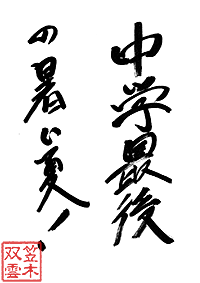 中学最後
の暑い夏！
笠木
双雲